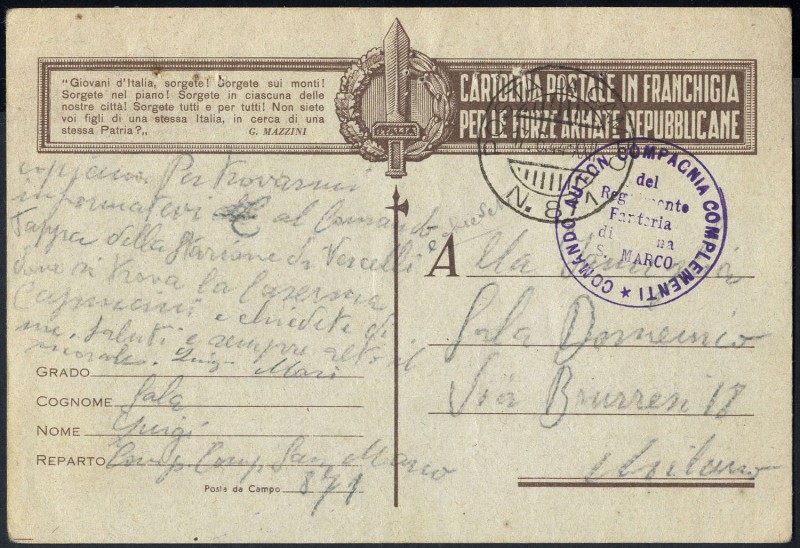 "Giovani d'Italia, sorgete! Sorgete sui monti!
Sorgete nel piano! Sorgete in ciascuna delle
nostre città! Sorgete tutti e per tutti! Non siete
voi figli di una stessa Italia, in cerca di una
stessa Patria?„
G. MAZZINI
ITALIA
CARTOLINA POSTALE IN FRANCHIGIA
PER LE FORZE ARMATE REPUBBLICANE
N. 871
COMANDO AUTON COMPAGNIA COMPLEMENTI
del
Reggimento
Fanteria
di na
S. MARCO
Per trovarmi
informatevi al Comando
Tappa della Stazione di Vercelli e
dove si trova la Caserma
e chiedete di
me. Saluti e sempre alto il
morale. Luigi
A
Alla
Sala Domenico
Via 17
Milano
GRADO
COGNOME Sala
NOME Luigi
REPARTO Comp. Comp. San Marco
Posta da Campo 871